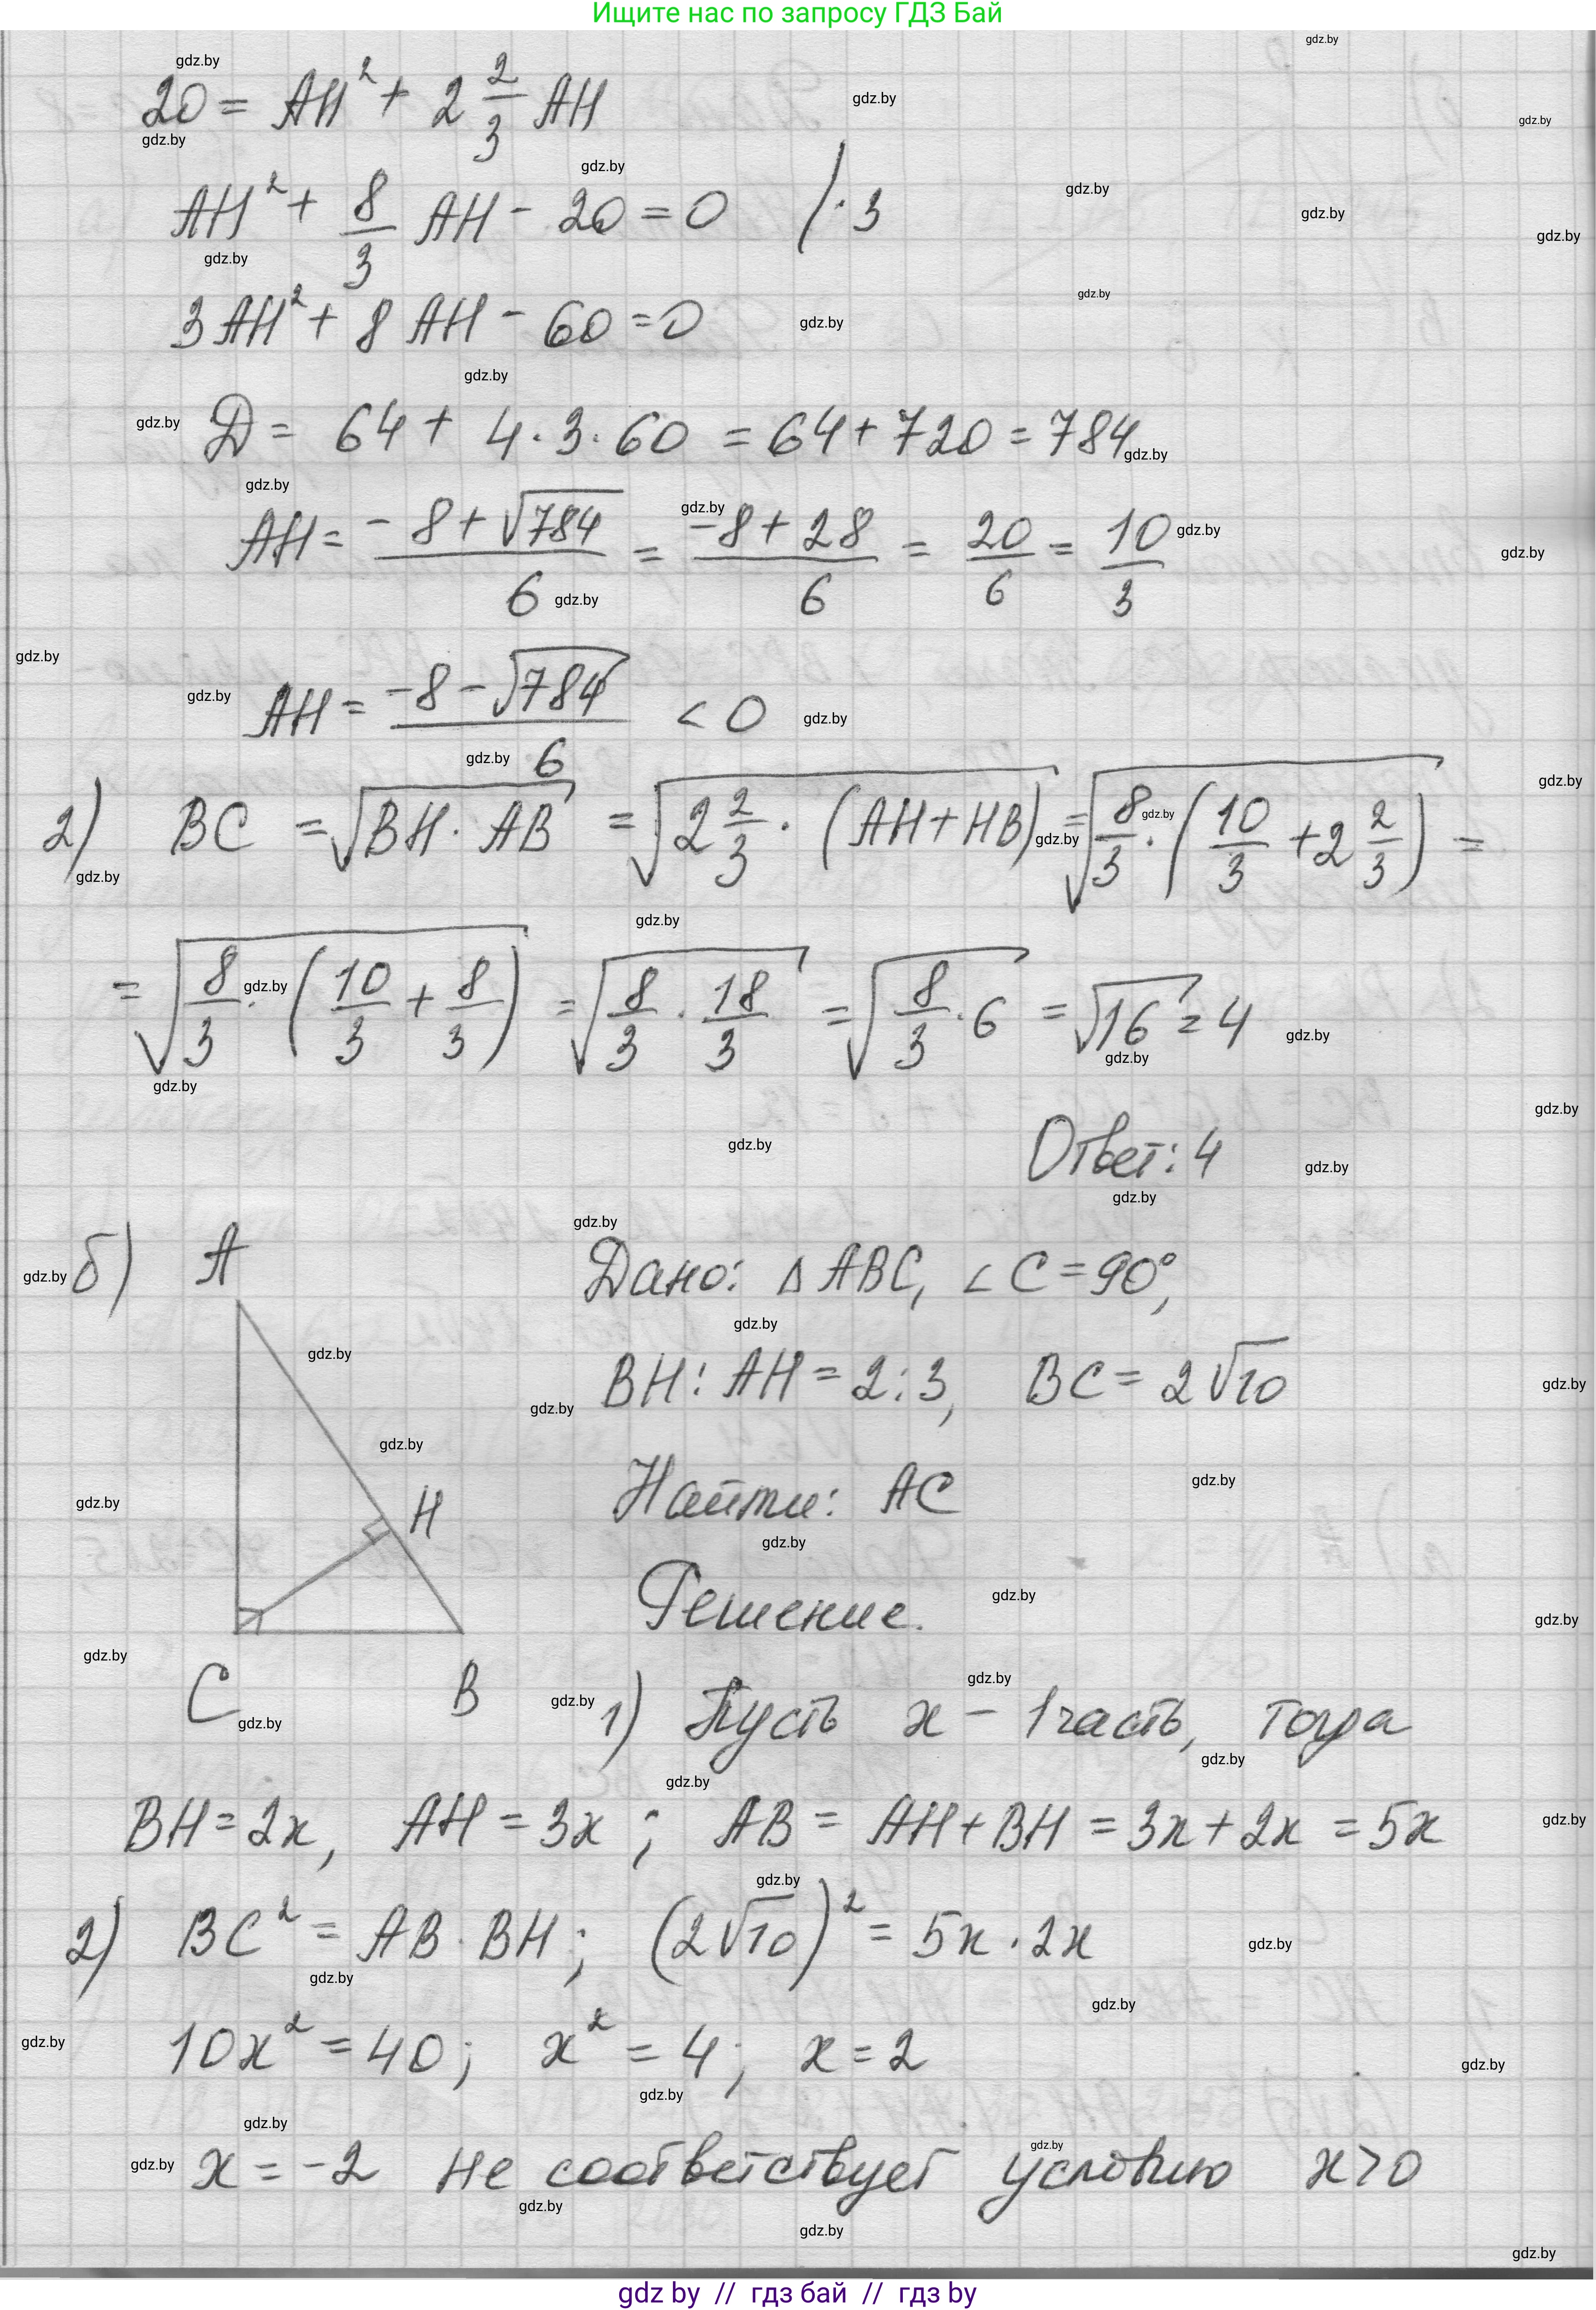 Ищите нас по запросу ГДЗ Бай
20 = AH² + 2 2/3 AH
AH² + 8/3 AH - 20 = 0 / · 3
3AH² + 8 AH - 60 = 0
Д = 64 + 4 · 3 · 60 = 64 + 720 = 784
AH = (-8 + √784)/6 = (-8 + 28)/6 = 20/6 = 10/3
AH = (-8 - √784)/6 < 0
2) BC = √(BH · AB) = √(2 2/3 · (AH + HB)) = √(8/3 · (10/3 + 2 2/3)) =
= √(8/3 · (10/3 + 8/3)) = √(8/3 · 18/3) = √(8/3 · 6) = √16 = 4
Ответ: 4
б) A
Дано: △ ABC, ∠ C = 90°,
BH : AH = 2 : 3, BC = 2√10
H
Найти: AC
Решение.
C B
1) Пусть x - 1 часть, тогда
BH = 2x, AH = 3x ; AB = AH + BH = 3x + 2x = 5x
2) BC² = AB · BH ; (2√10)² = 5x · 2x
10x² = 40 ; x² = 4 ; x = 2
x = -2 не соответствует условию x > 0
gdz.by
gdz by // гдз бай // гдз by